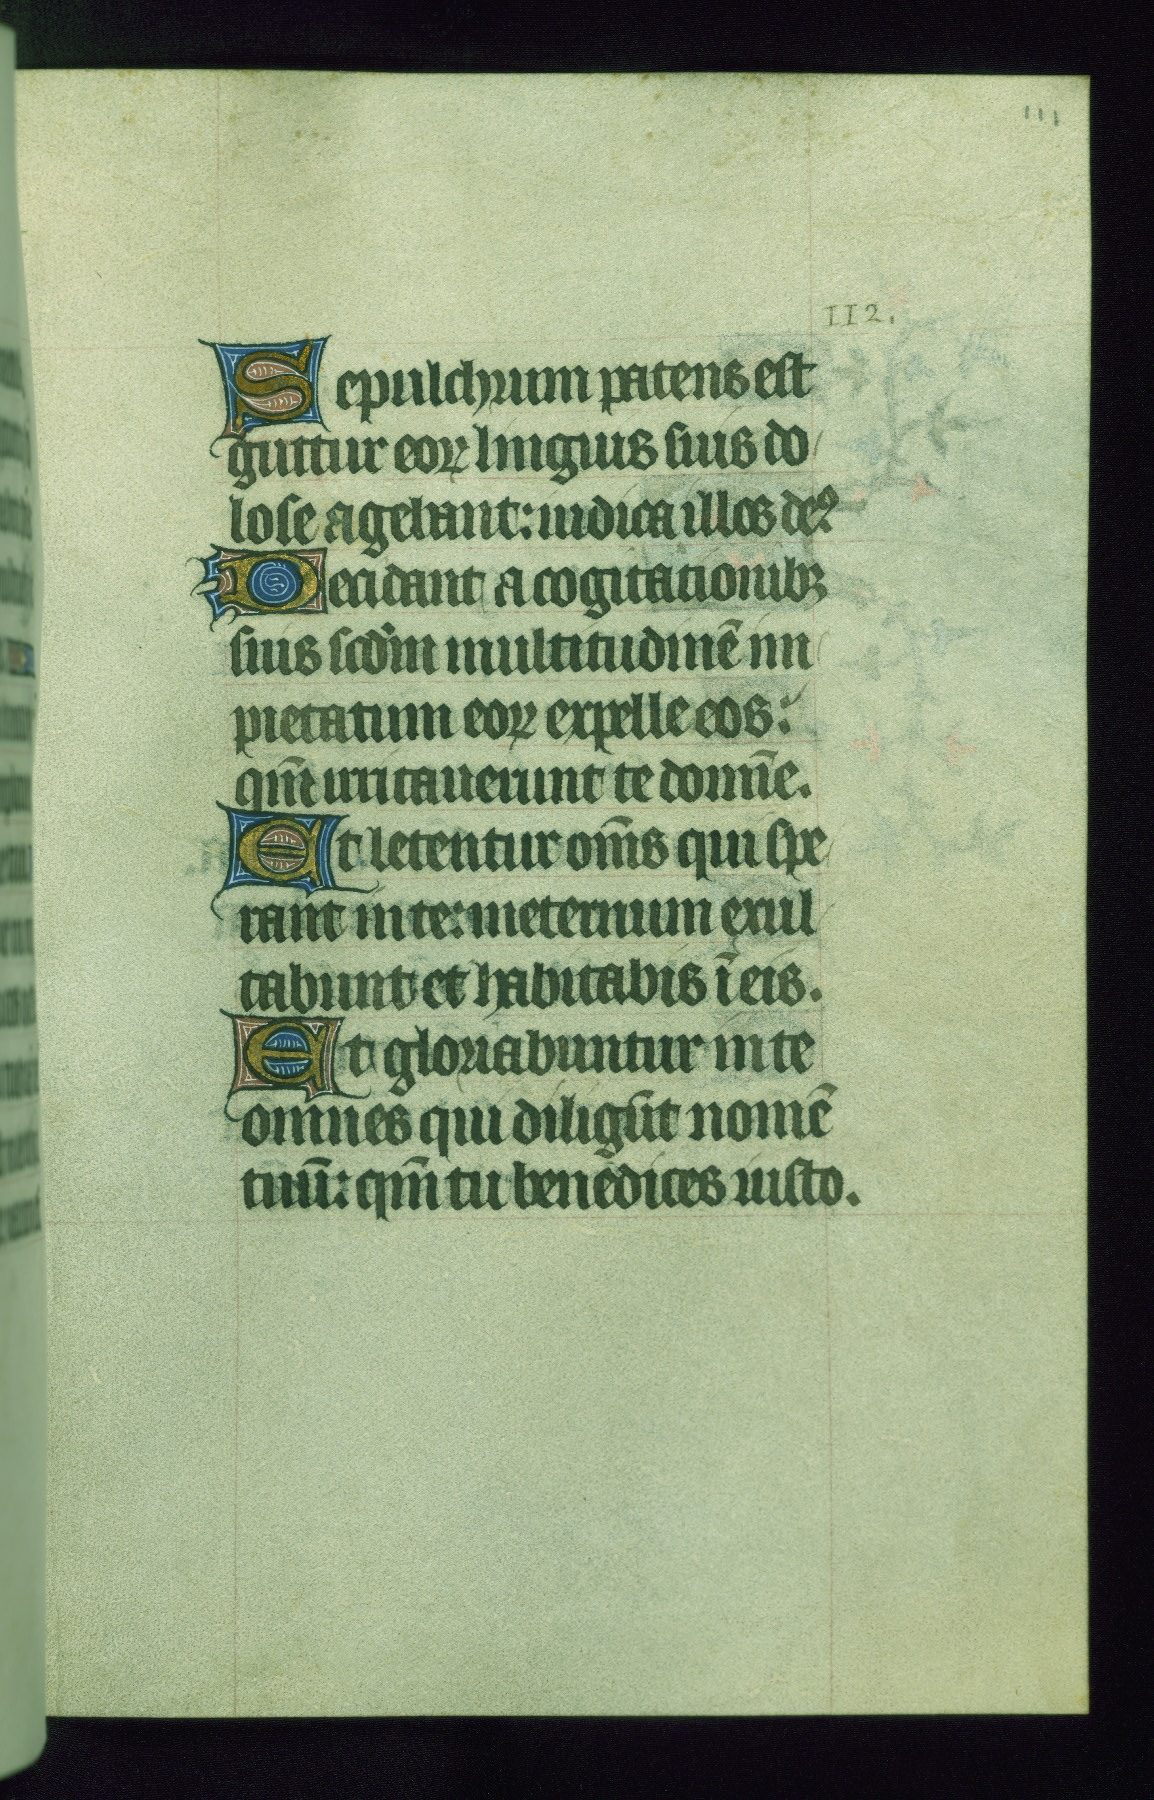 111
112.
Sepulchrum patens est
guttur eoꝝ linguis suis do
lose agebant: iudica illos deꝰ
Decidant a cogitationibꝫ
suis scd̄m multitudinē im
pietatum eoꝝ expelle eos:
qm̄ irritauerunt te domīe.
Et letentur om̄s qui spe
rant in te: in eternum exul
tabunt et habitabis ī eis.
Et gloriabuntur in te
omnes qui diligūt nomē
tuū: qm̄ tu benedices iusto.